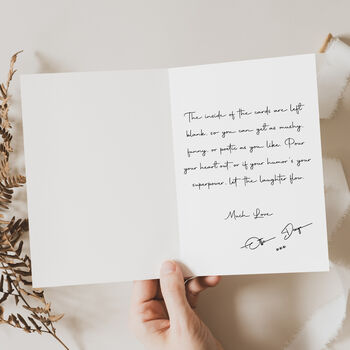 The inside of the cards are left
blank, so you can get as mushy,
funny, or poetic as you like. Pour
your heart out or if your humor's your
superpower, let the laughter flow.
Much Love